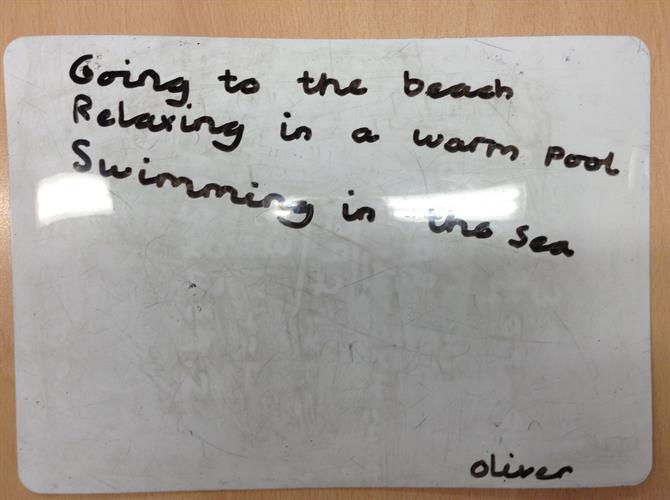 Going to the beach
Relaxing in a warm pool
Swimming in the sea
oliver